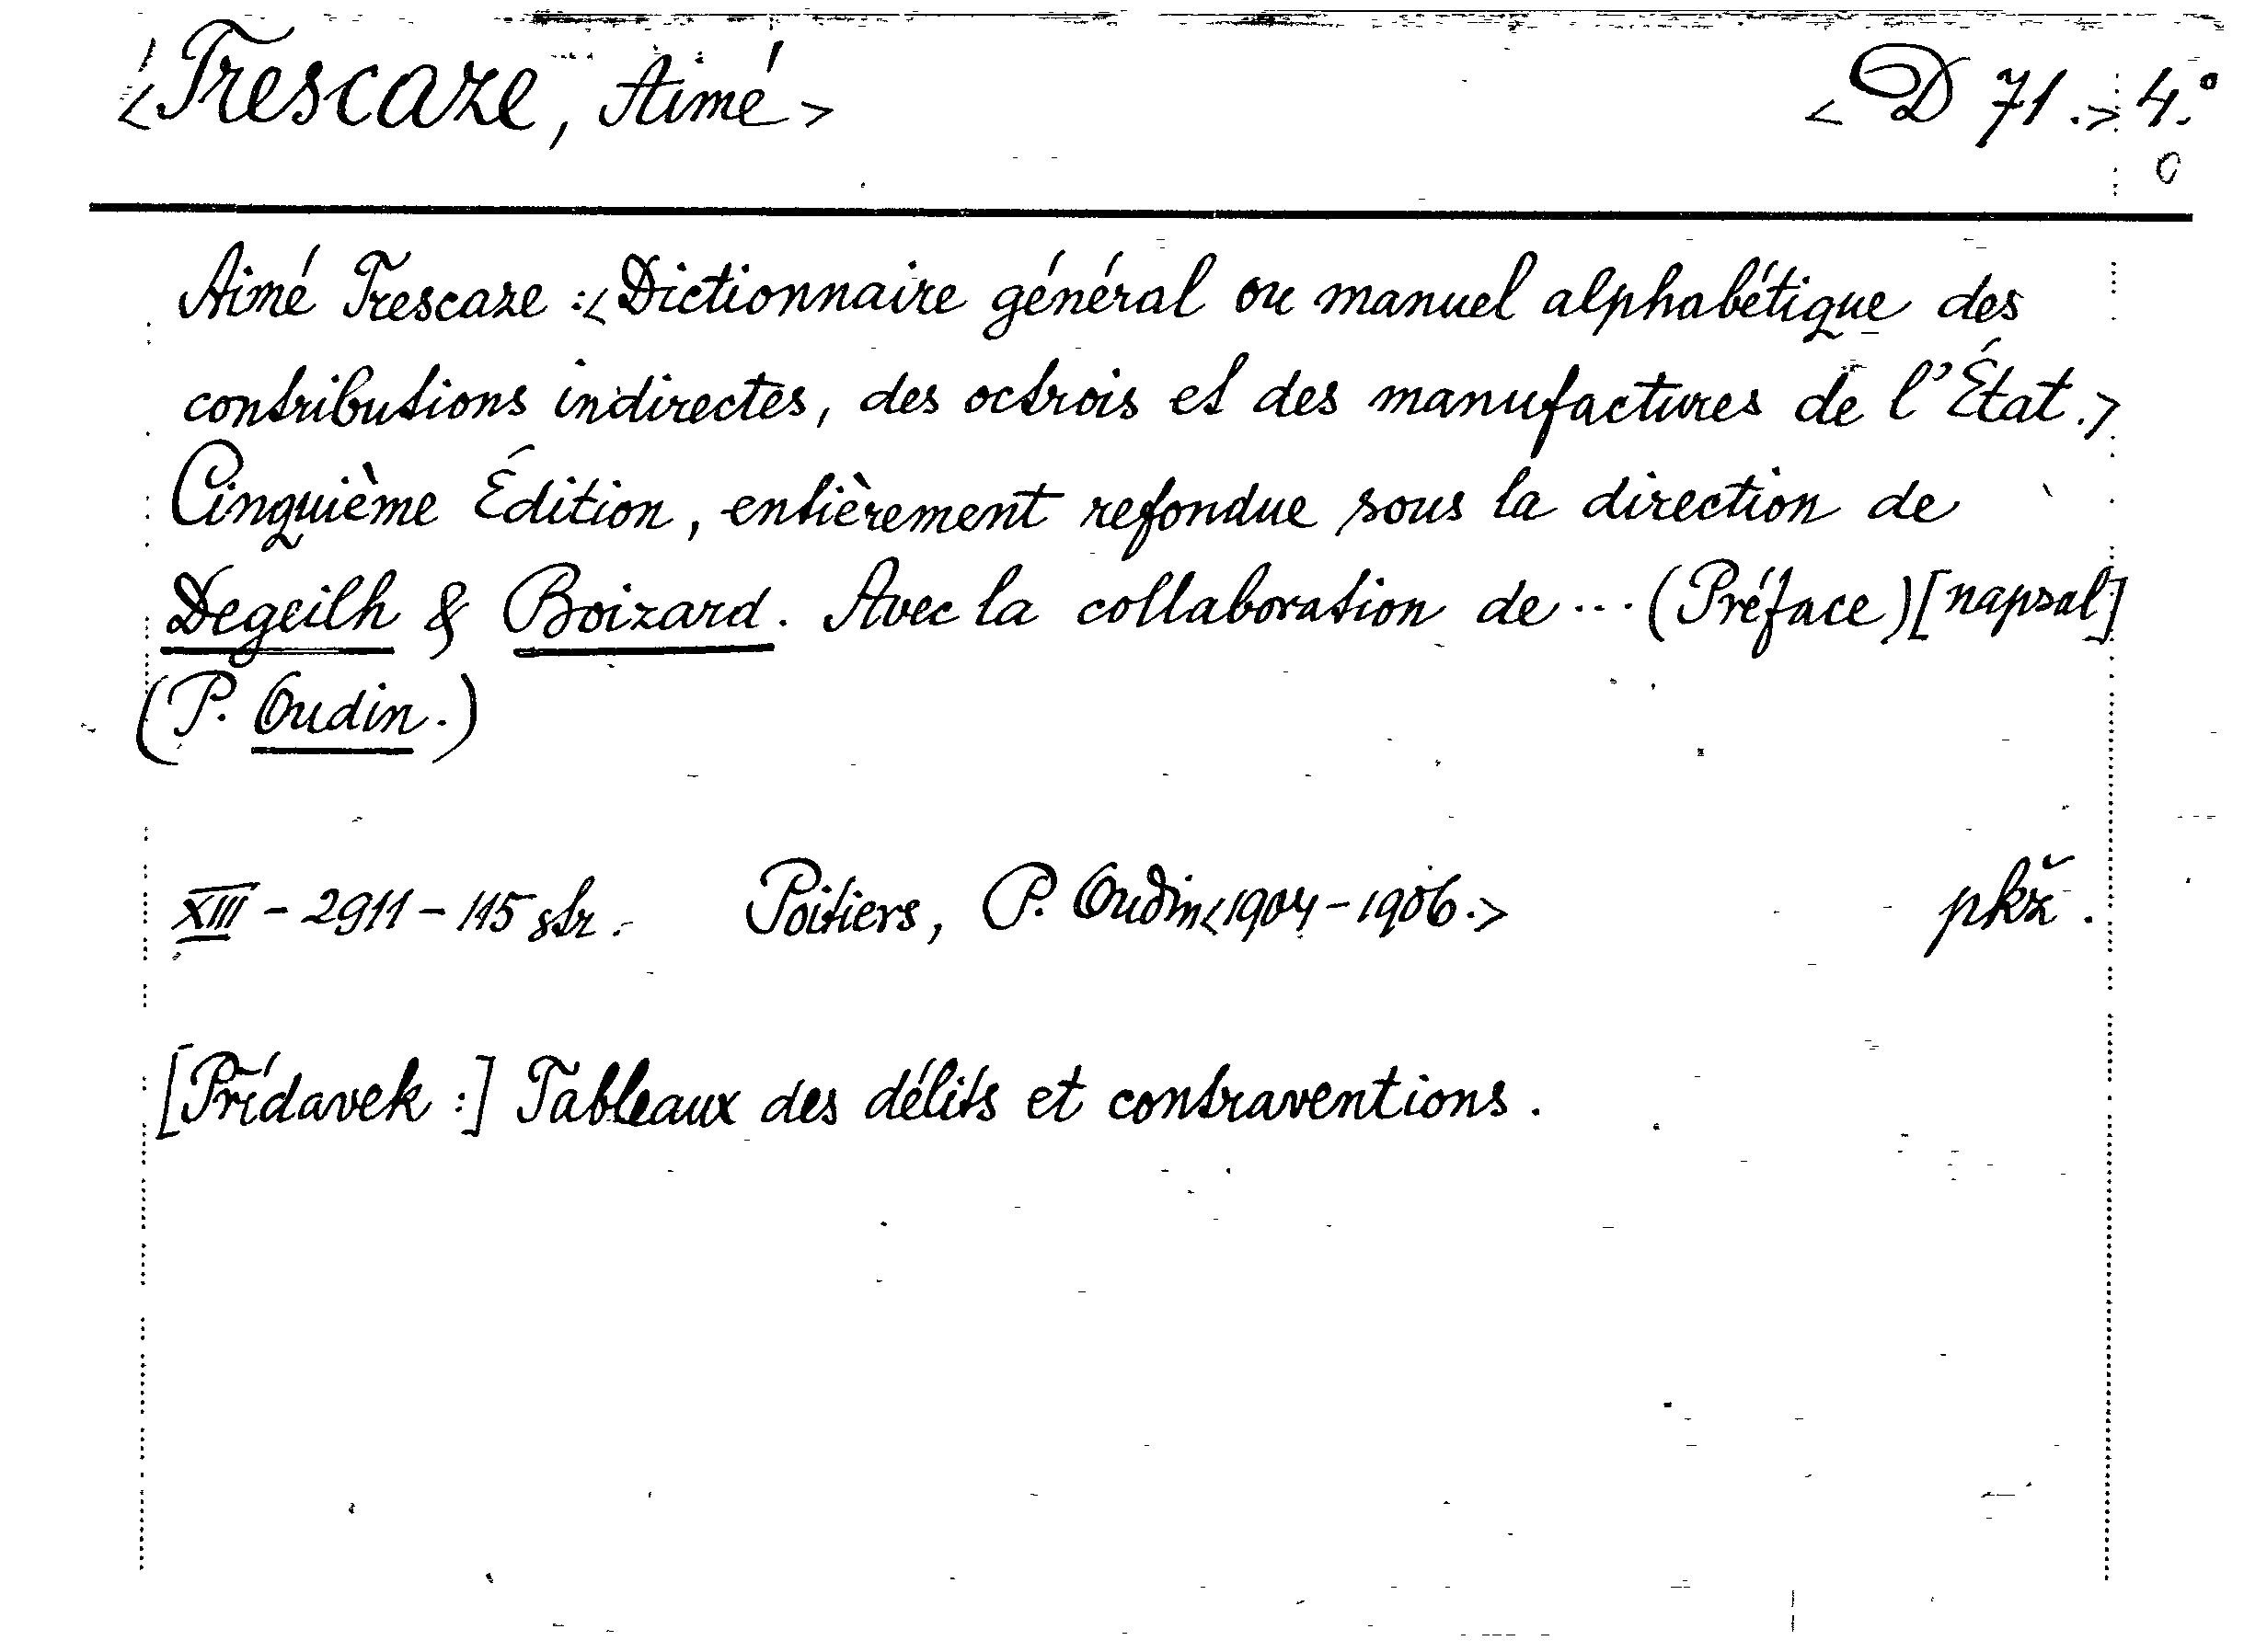 <Trescaze, Aimé> <D 71.> 4.°
c
Aimé Trescaze :<Dictionnaire général ou manuel alphabétique des
contributions indirectes, des octrois et des manufactures de l'État.>
Cinquième Édition, entièrement refondue sous la direction de
Degeilh & Boizard. Avec la collaboration de ... (Préface) [napsal]
(P. Oudin.)
XIII - 2911 - 115 str. Poitiers, P. Oudin <1904-1906.> pkž.
[Přídavek :] Tableaux des délits et contraventions.